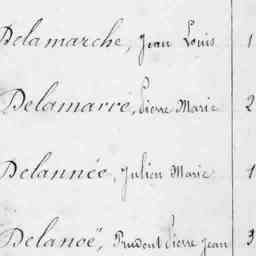 Delamarche, Jean Louis 1
Delamarre, Pierre Marie 2
Delannée, Julien Marie 1
Delanoë, Prudent Pierre Jean 3